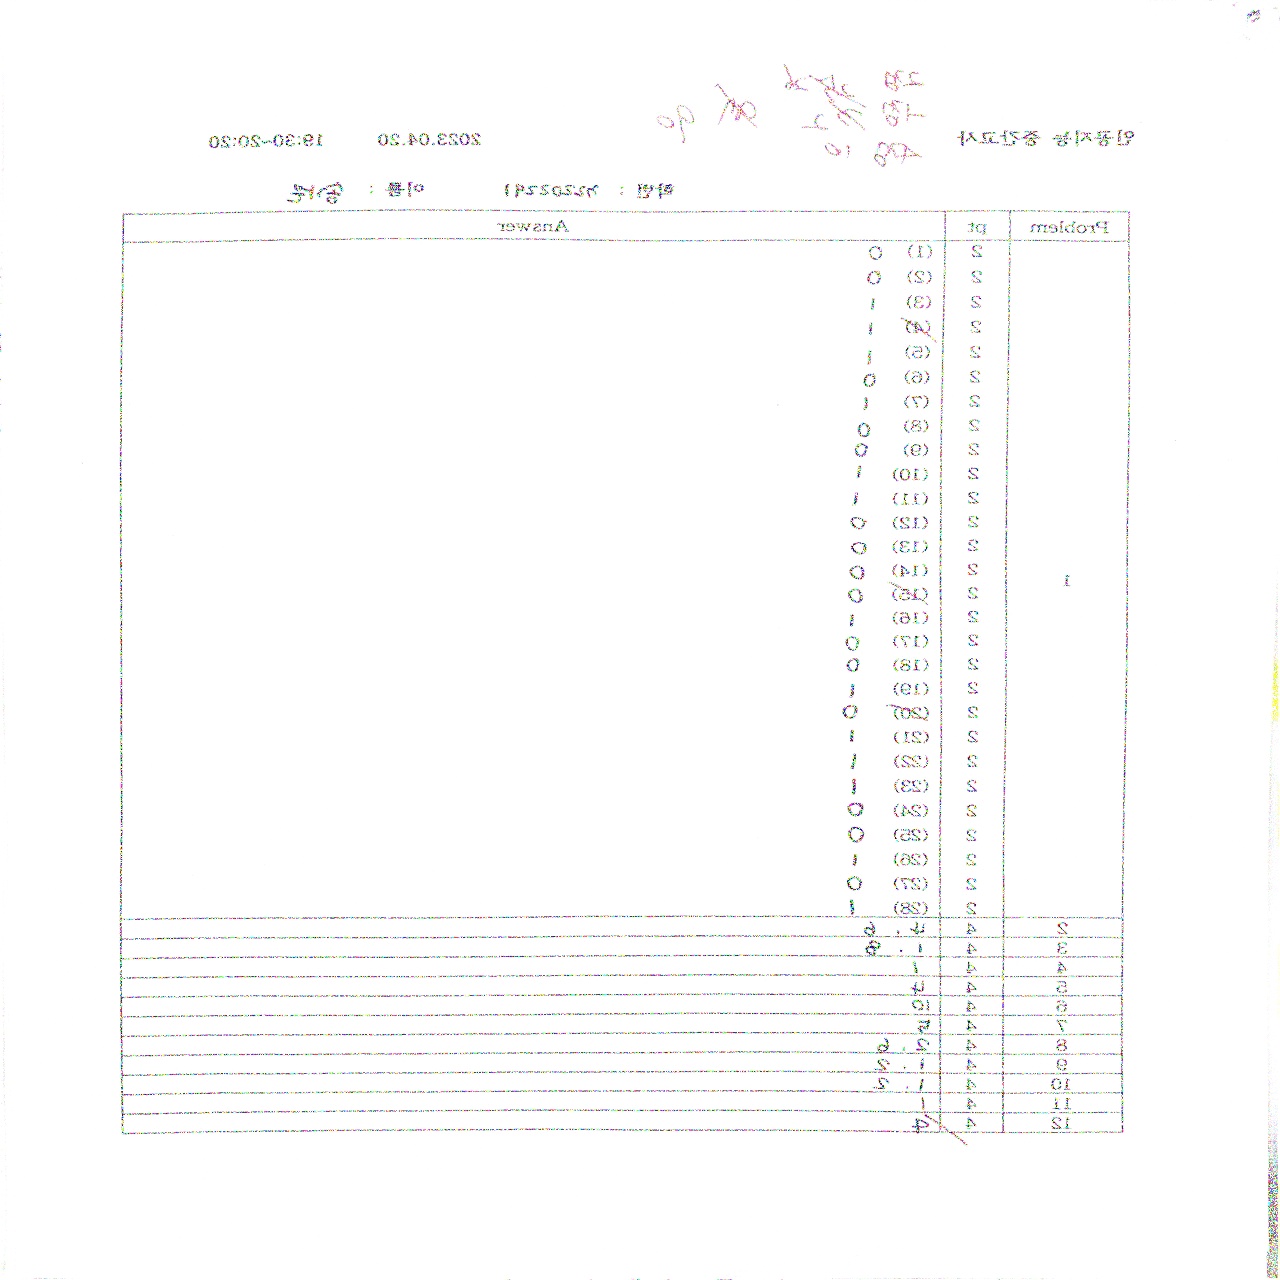 인공지능 중간고사 2023.04.20 19:30~20:20
학번 : 이름 :
Problem pt Answer
1
2 (1) 0
2 (2) 0
2 (3) 1
2 (4) 1
2 (5) 1
2 (6) 0
2 (7) 1
2 (8) 0
2 (9) 0
2 (10) 1
2 (11) 1
2 (12) 0
2 (13) 0
2 (14) 0
2 (15) 0
2 (16) 1
2 (17) 0
2 (18) 0
2 (19) 1
2 (20) 0
2 (21) 1
2 (22) 1
2 (23) 1
2 (24) 0
2 (25) 0
2 (26) 1
2 (27) 0
2 (28) 1
2 4 7.
3 4 1.
4 4 1
5 4 7
6 4
7 4
8 4 2.6
9 4 1.2
10 4 1.2
11 4 1
12 4 4